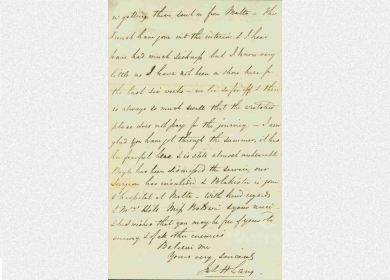 in getting them sent on from Malta – The
French have gone into the interior & I hear
have had much sickness but I know very
little as I have not been on shore here for
the last six weeks – we lie so far off & there
is always so much swell that the wretched
place does not pay for the journey – I am
glad you have got through the summer, it has
been fearful here & is still almost unbearable
has been dismissed the service, our
Surgeon has invalided & is in your
hospital at Malta – with kind regards
to Mrs Miss & your niece
& best wishes that you may be free of
& all other enemies
Believe me
Yours very sincerely